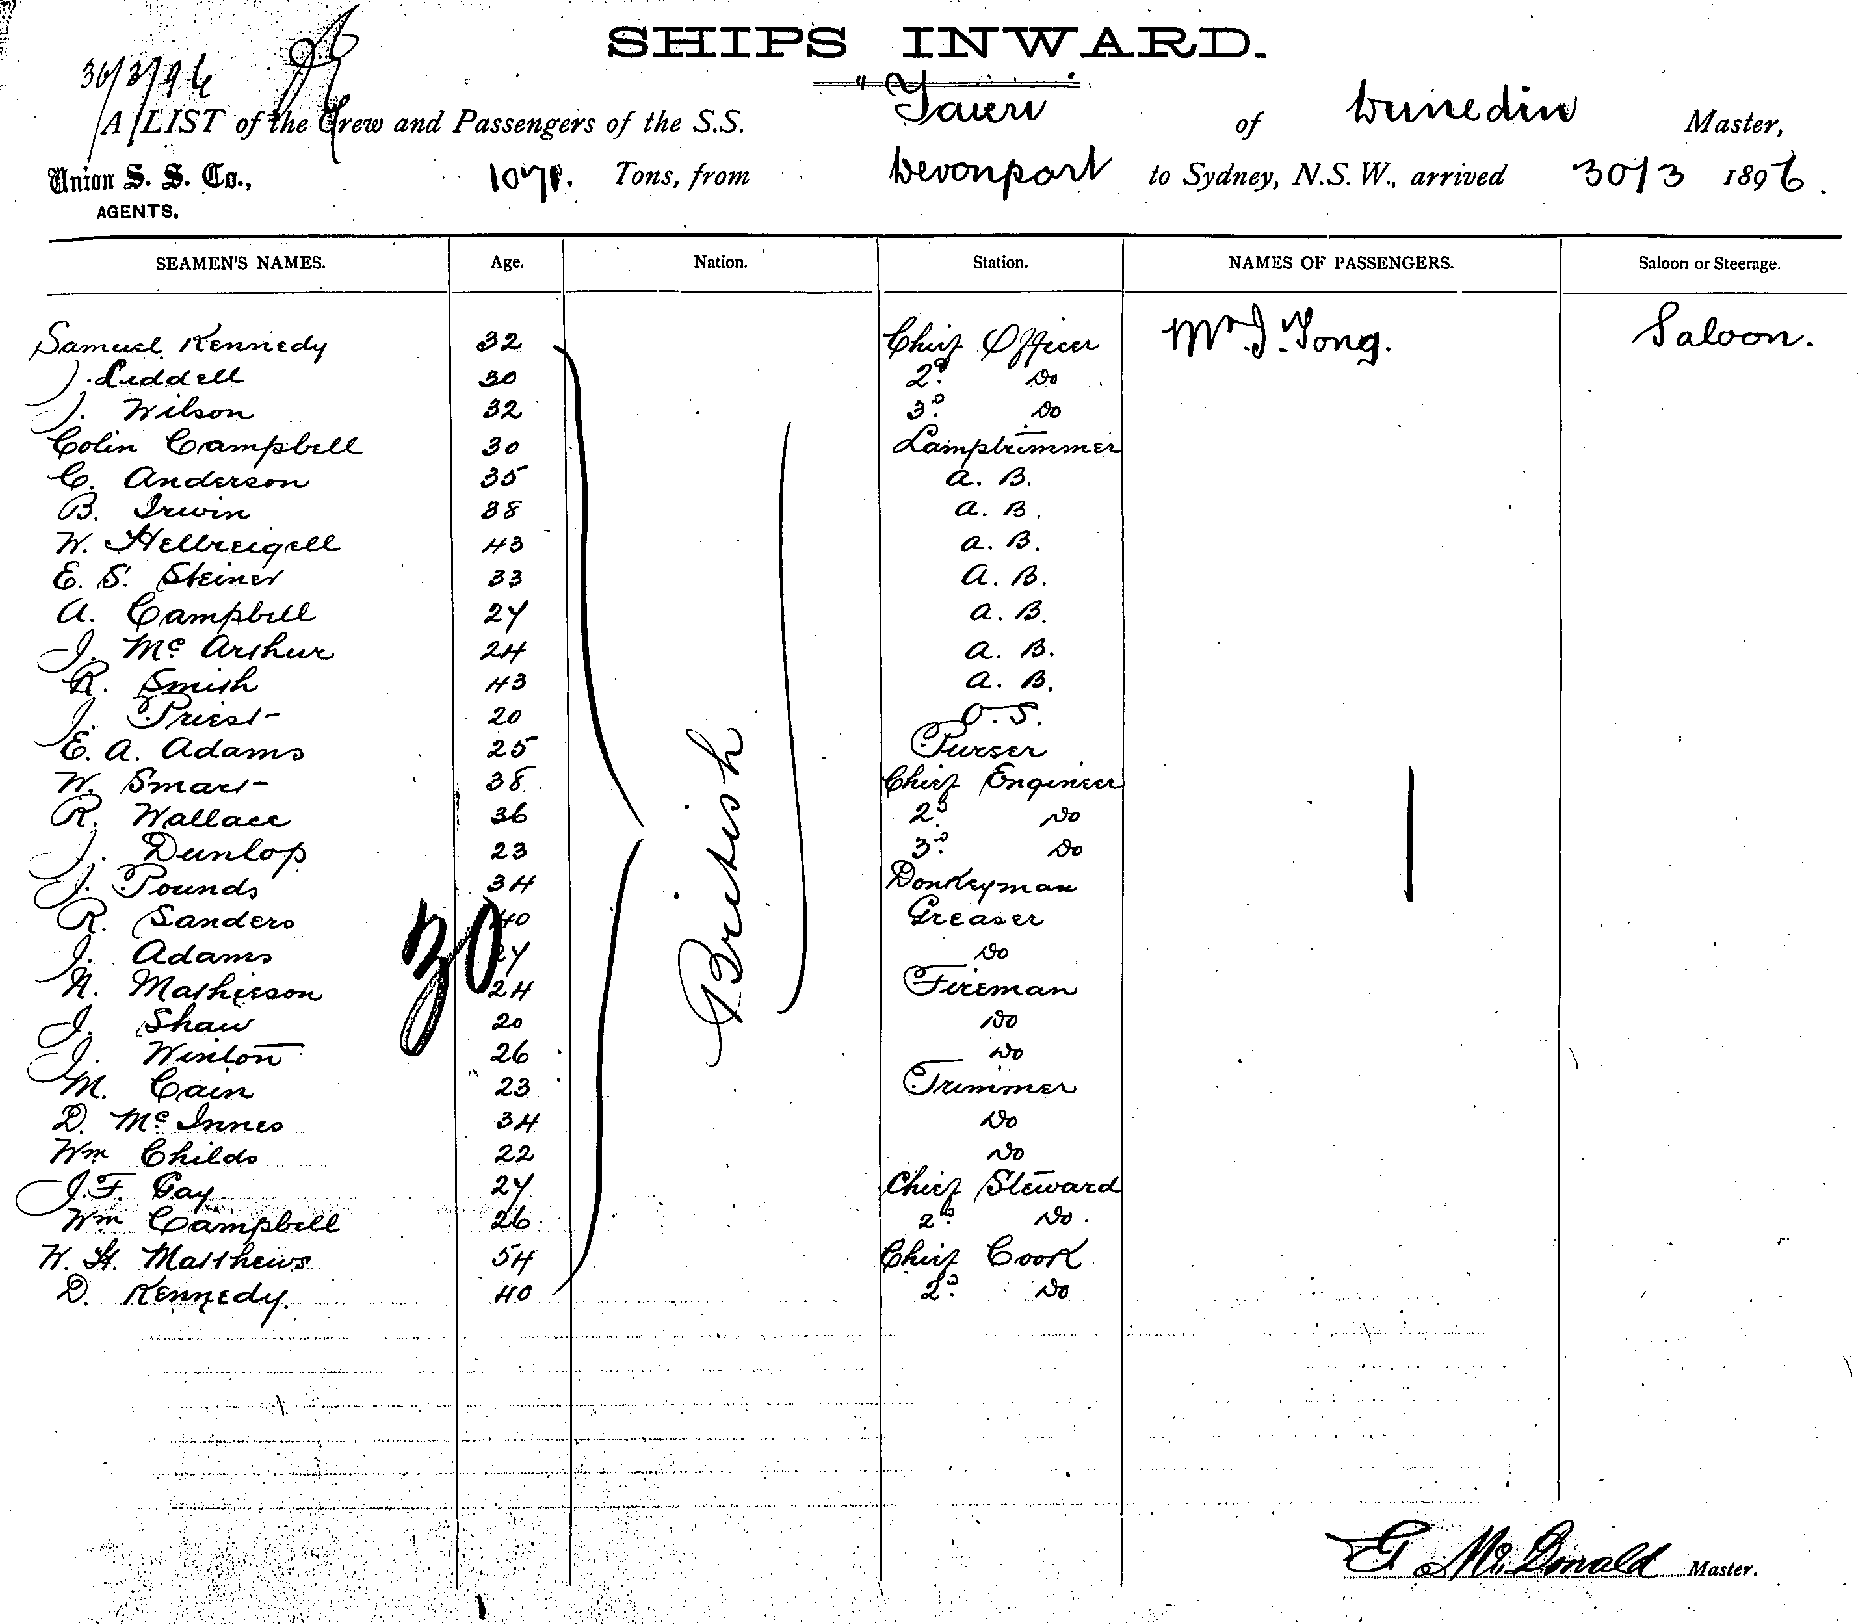 SHIPS INWARD.
30/3/96
"Taieri"
A LIST of the Crew and Passengers of the S.S. of Dunedin Master,
Union S. S. Co., 1071. Tons, from Devonport to Sydney, N.S.W., arrived 30/3 1896.
AGENTS.
SEAMEN'S NAMES. Age. Nation. Station. NAMES OF PASSENGERS. Saloon or Steerage.
Samuel Kennedy 32 Chief Officer Mr J. Tong. Saloon.
J. Liddell 30 2d Do
J. Wilson 32 3d Do
Colin Campbell 30 Lamptrimmer
C. Anderson 35 A. B.
B. Irwin 38 A. B.
W. Hellreigell 43 A. B.
E. S. Steiner 33 A. B.
A. Campbell 27 A. B.
J. Mc Arthur 24 A. B.
R. Smith 43 A. B.
J. Priest 20 O. S.
E. A. Adams 25 Purser
W. Smart 38 Chief Engineer
R. Wallace 36 2d Do
J. Dunlop 23 3d Do
British
J. Pounds 34 Donkeyman
R. Sanders 40 Greaser
30
J. Adams 27 Do
N. Mathieson 24 Fireman
J. Shaw 20 Do
J. Winton 26 Do
M. Cain 23 Trimmer
D. Mc Innes 34 Do
Wm Childs 22 Do
J. F. Gay 27 Chief Steward
Wm Campbell 26 2d Do.
W. H. Matthews 54 Chief Cook
D. Kennedy. 40 2d Do
G McDonald Master.